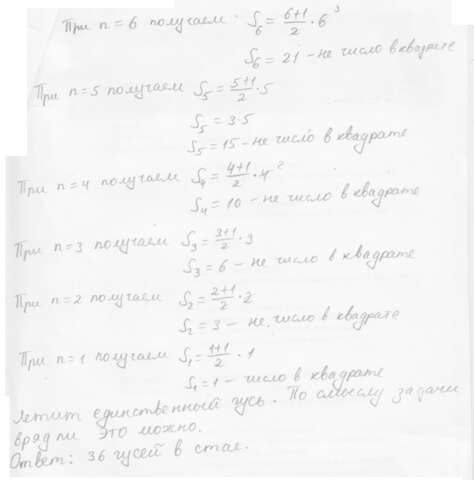 При n = 6 получаем S₆ = (6+1)/2 · 6 3
S₆ = 21 - не число в квадрате
При n = 5 получаем S₅ = (5+1)/2 · 5
S₅ = 3·5
S₅ = 15 - не число в квадрате
При n = 4 получаем S₄ = (4+1)/2 · 4 2
S₄ = 10 - не число в квадрате
При n = 3 получаем S₃ = (3+1)/2 · 3
S₃ = 6 - не число в квадрате
При n = 2 получаем S₂ = (2+1)/2 · 2
S₂ = 3 - не число в квадрате
При n = 1 получаем S₁ = (1+1)/2 · 1
S₁ = 1 - число в квадрате
Летит единственный гусь. По смыслу задачи
вряд ли это можно.
Ответ: 36 гусей в стае.